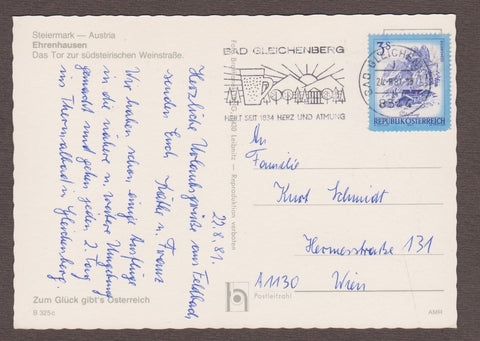 Steiermark — Austria
Ehrenhausen
Das Tor zur südsteirischen Weinstraße.
22.8.81.
Herzliche Urlaubsgrüße aus Feldbach,
senden Euch Käthe u. Franz
Wir haben schon einige Ausflüge
in die nähere u. weitere Umgebung
gemacht und gehen jeden 2. Tag
ins Thermalbad in Gleichenberg.
Zum Glück gibt's Österreich
B 325c
Leibnitz — Reproduktion verboten
BAD GLEICHENBERG
HEILT SEIT 1834 HERZ UND ATMUNG
BAD GLEICHENBERG
3s
REPUBLIK ÖSTERREICH
An
Familie
Kurt Schmidt
Hermesstraße 131
A1130 Wien
Postleitzahl
AMR